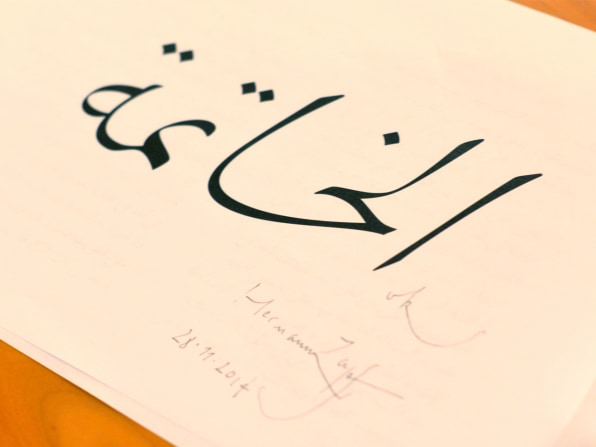 الخاتمة
ok
Hermann Zapf
28.11.2014